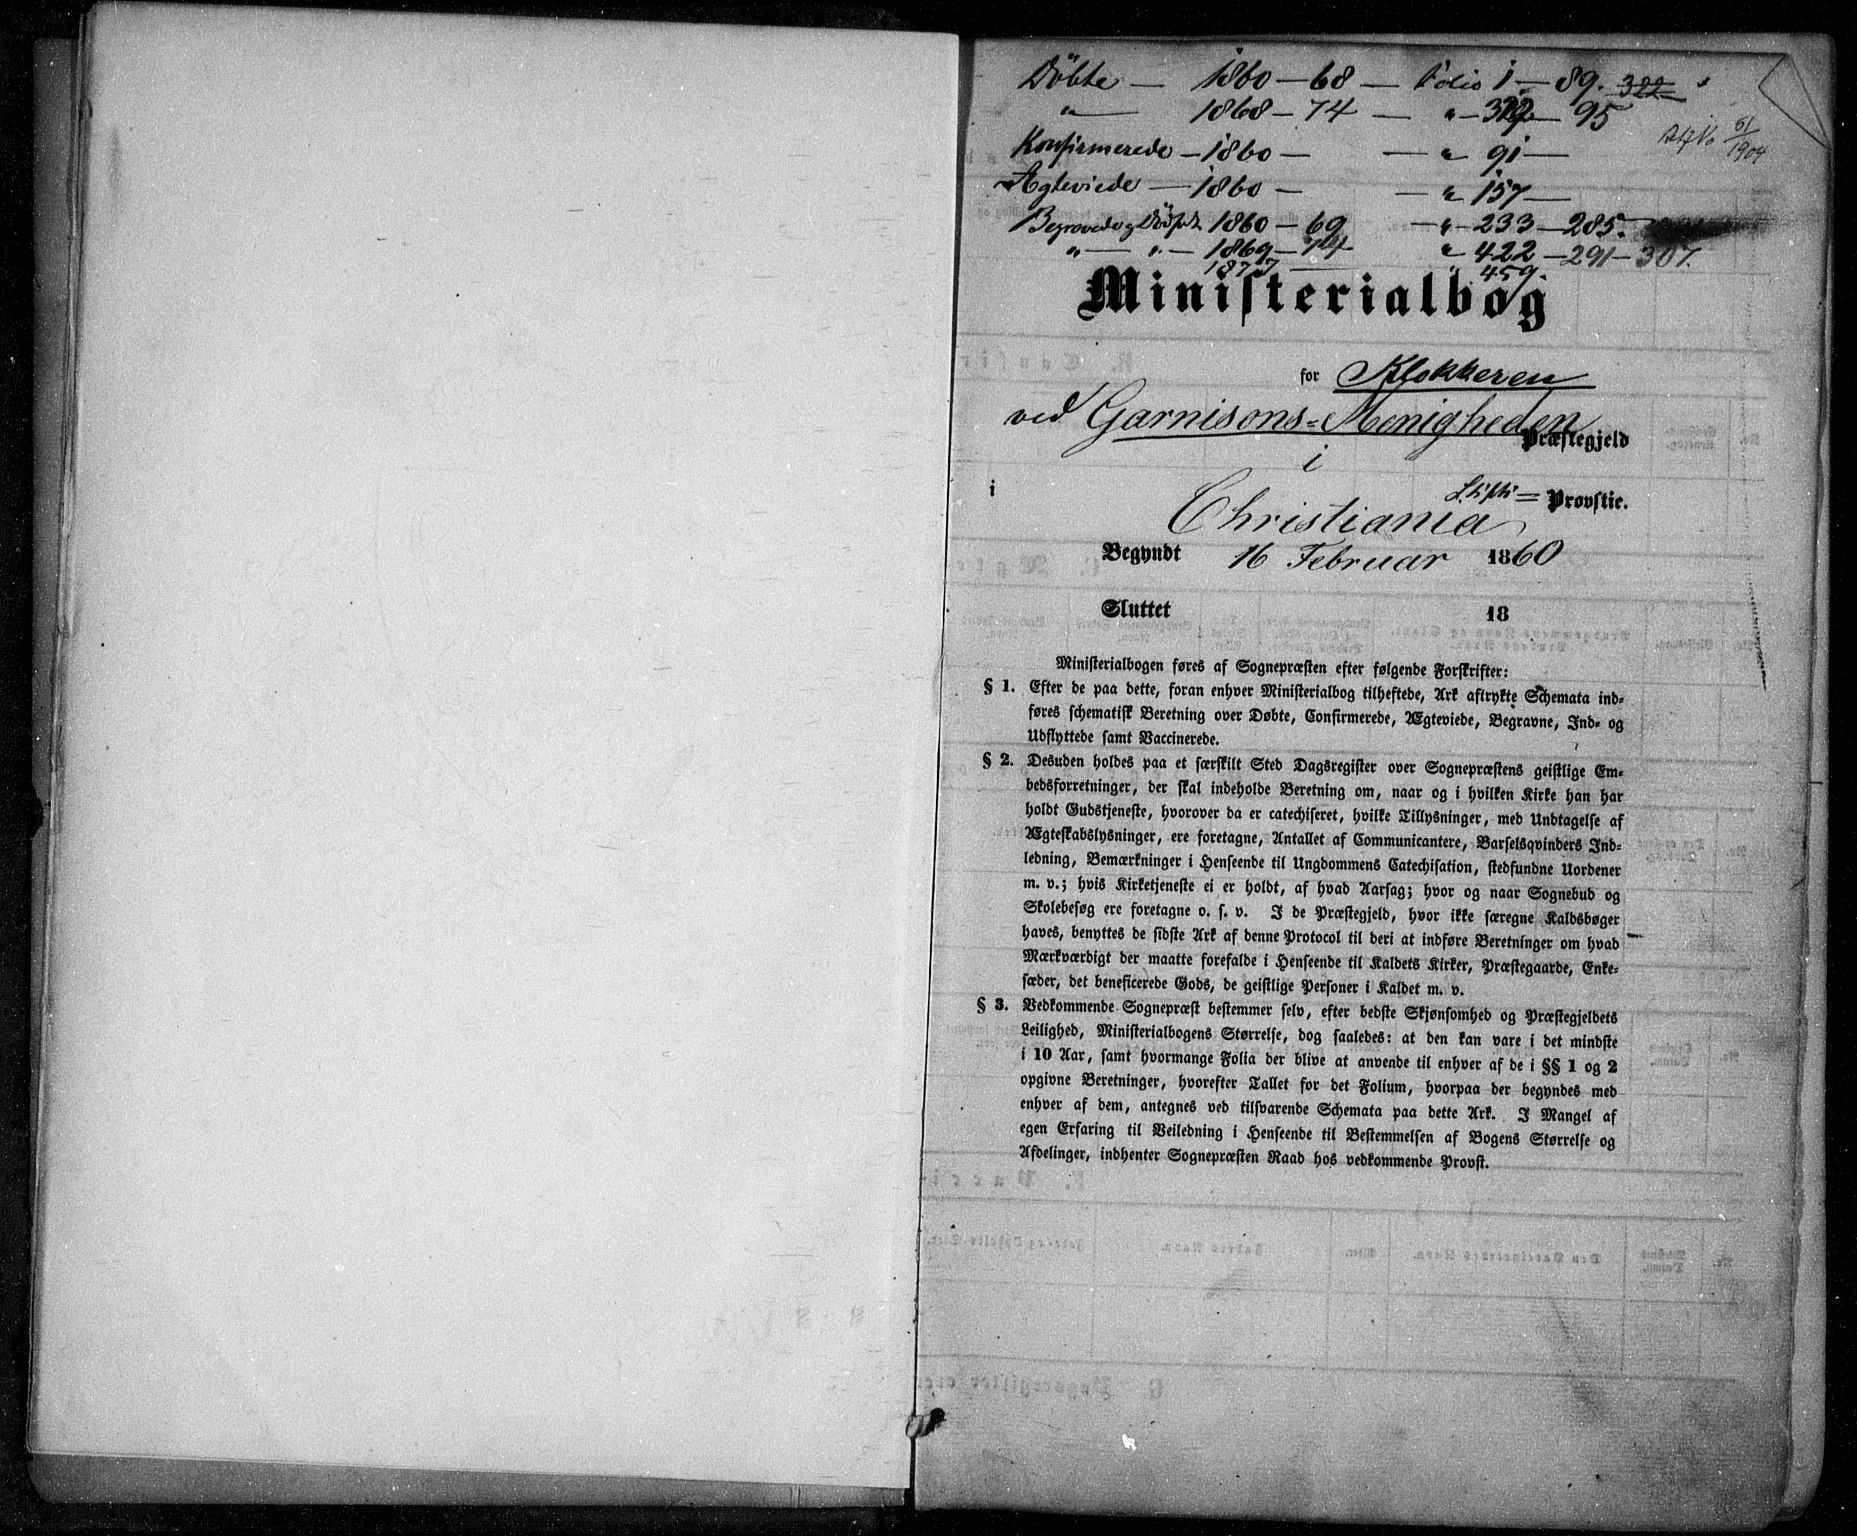 Döbte — 1860 — 68 — Folio 1 — 89. 322
" — 1868 — 74 — " — — 95
Konfirmerede — 1860 — — " 91 —
Ægteviede — 1860 — — " 157 —
Begravede og 1860 — 69 — " — 233 — 285.
" — " — 1869 — 74 " 422 — 291 — 307.
1877 — 459.
51/1904
Ministerialbog
for Klokkeren
ved Garnisons=Menigheden Præstegjeld
i
i Stifts= Provstie.
Christiania
Begyndt 16 Februar 1860
Sluttet 18
Ministerialbogen føres af Sognepræsten efter følgende Forskrifter:
§ 1. Efter de paa dette, foran enhver Ministerialbog tilheftede, Ark aftrykte Schemata ind-
føres schematisk Beretning over Døbte, Confirmerede, Ægteviede, Begravne, Ind- og
Udflyttede samt Vaccinerede.
§ 2. Desuden holdes paa et særskilt Sted Dagsregister over Sognepræstens geistlige Em-
bedsforretninger, der skal indeholde Beretning om, naar og i hvilken Kirke han har
holdt Gudstjeneste, hvorover da er catechiseret, hvilke Tillysninger, med Undtagelse af
Ægteskabslysninger, ere foretagne, Antallet af Communicantere, Barselqvinders Ind-
ledning, Bemærkninger i Henseende til Ungdommens Catechisation, stedfundne Uordener
m. v.; hvis Kirketjeneste ei er holdt, af hvad Aarsag; hvor og naar Sognebud og
Skolebesøg ere foretagne o. s. v. I de Præstegjeld, hvor ikke særegne Kaldsbøger
haves, benyttes de sidste Ark af denne Protocol til deri at indføre Beretninger om hvad
Mærkværdigt der maatte forefalde i Henseende til Kaldets Kirker, Præstegaarde, Enke-
sæder, det beneficerede Gods, de geistlige Personer i Kaldet m. v.
§ 3. Vedkommende Sognepræst bestemmer selv, efter bedste Skjønsomhed og Præstegjeldets
Leilighed, Ministerialbogens Størrelse, dog saaledes: at den kan vare i det mindste
i 10 Aar, samt hvormange Folia der blive at anvende til enhver af de i §§ 1 og 2
opgivne Beretninger, hvorefter Tallet for det Folium, hvorpaa der begyndes med
enhver af dem, antegnes ved tilsvarende Schemata paa dette Ark. I Mangel af
egen Erfaring til Veiledning i Henseende til Bestemmelsen af Bogens Størrelse og
Afdelinger, indhenter Sognepræsten Raad hos vedkommende Provst.